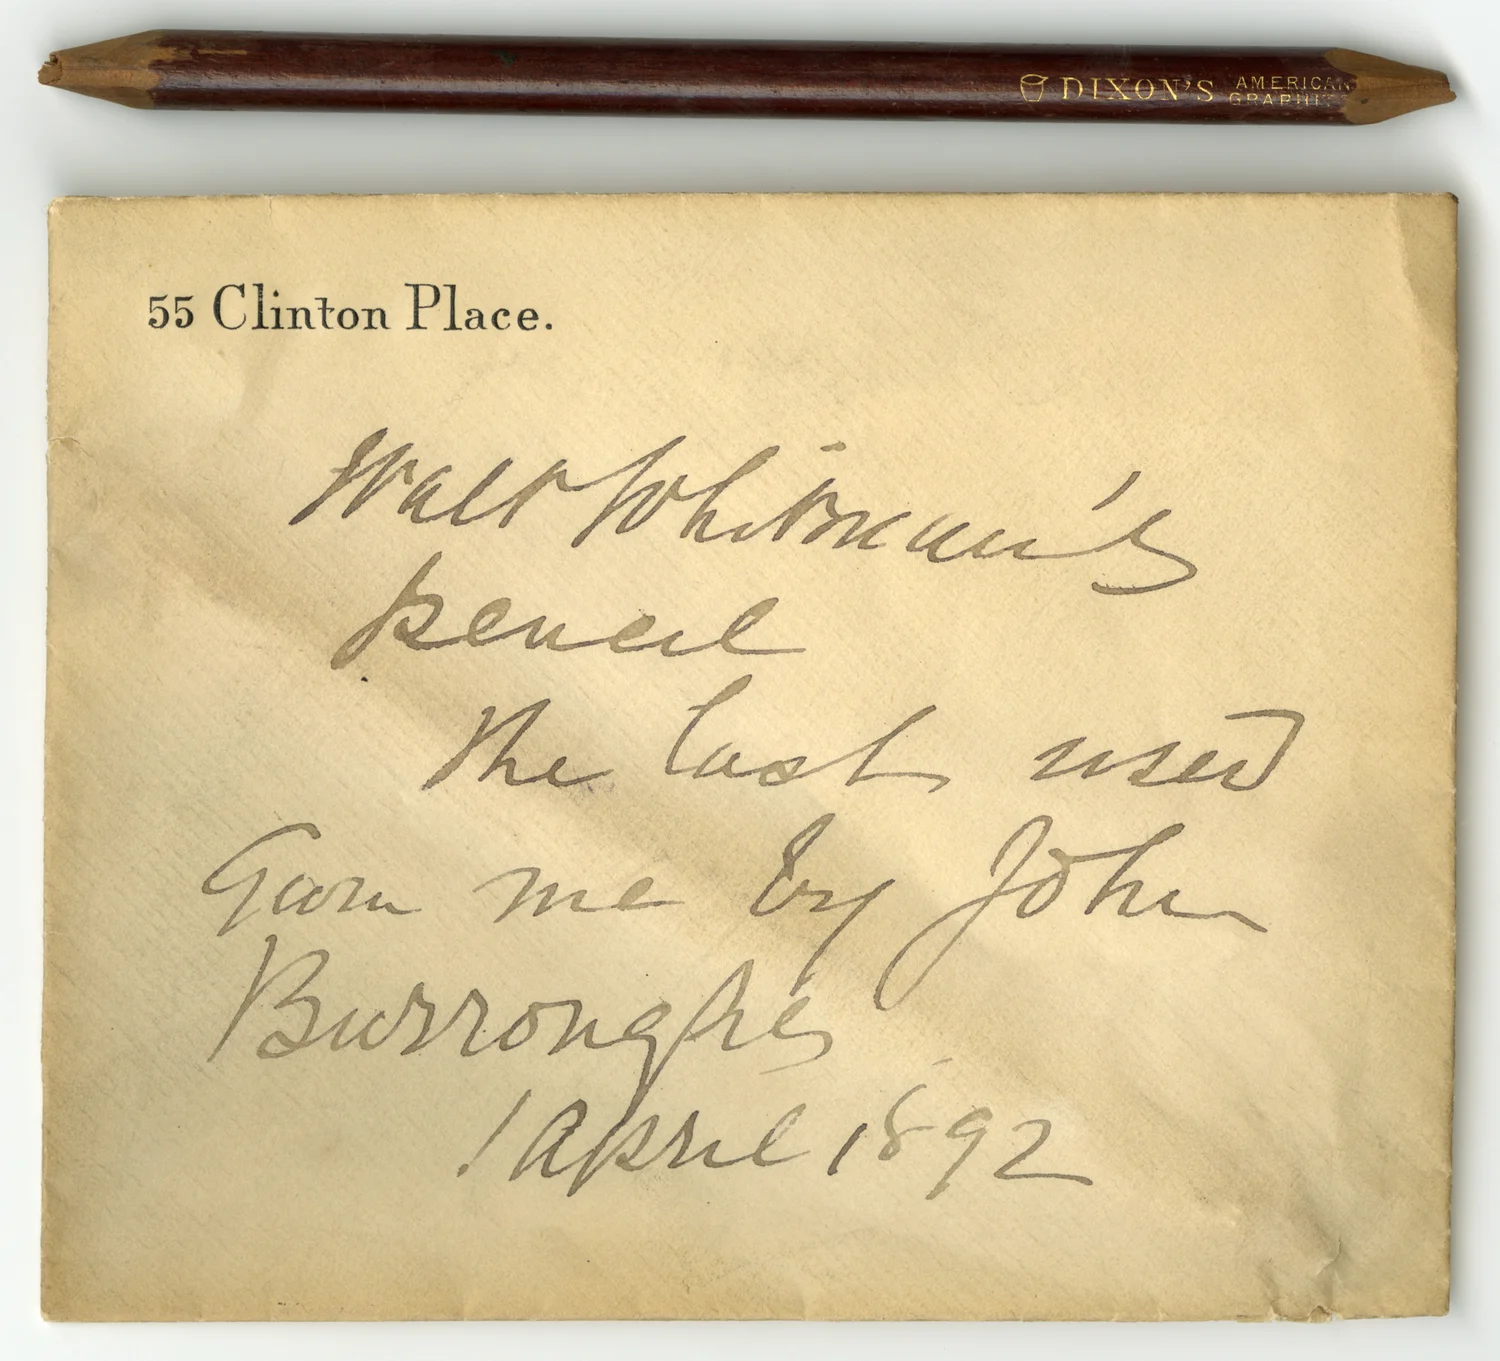 DIXON'S AMERICAN
GRAPHITE
55 Clinton Place.
Walt Whitman's
pencil
The last used
Given me by John
Burroughs
1 April 1892